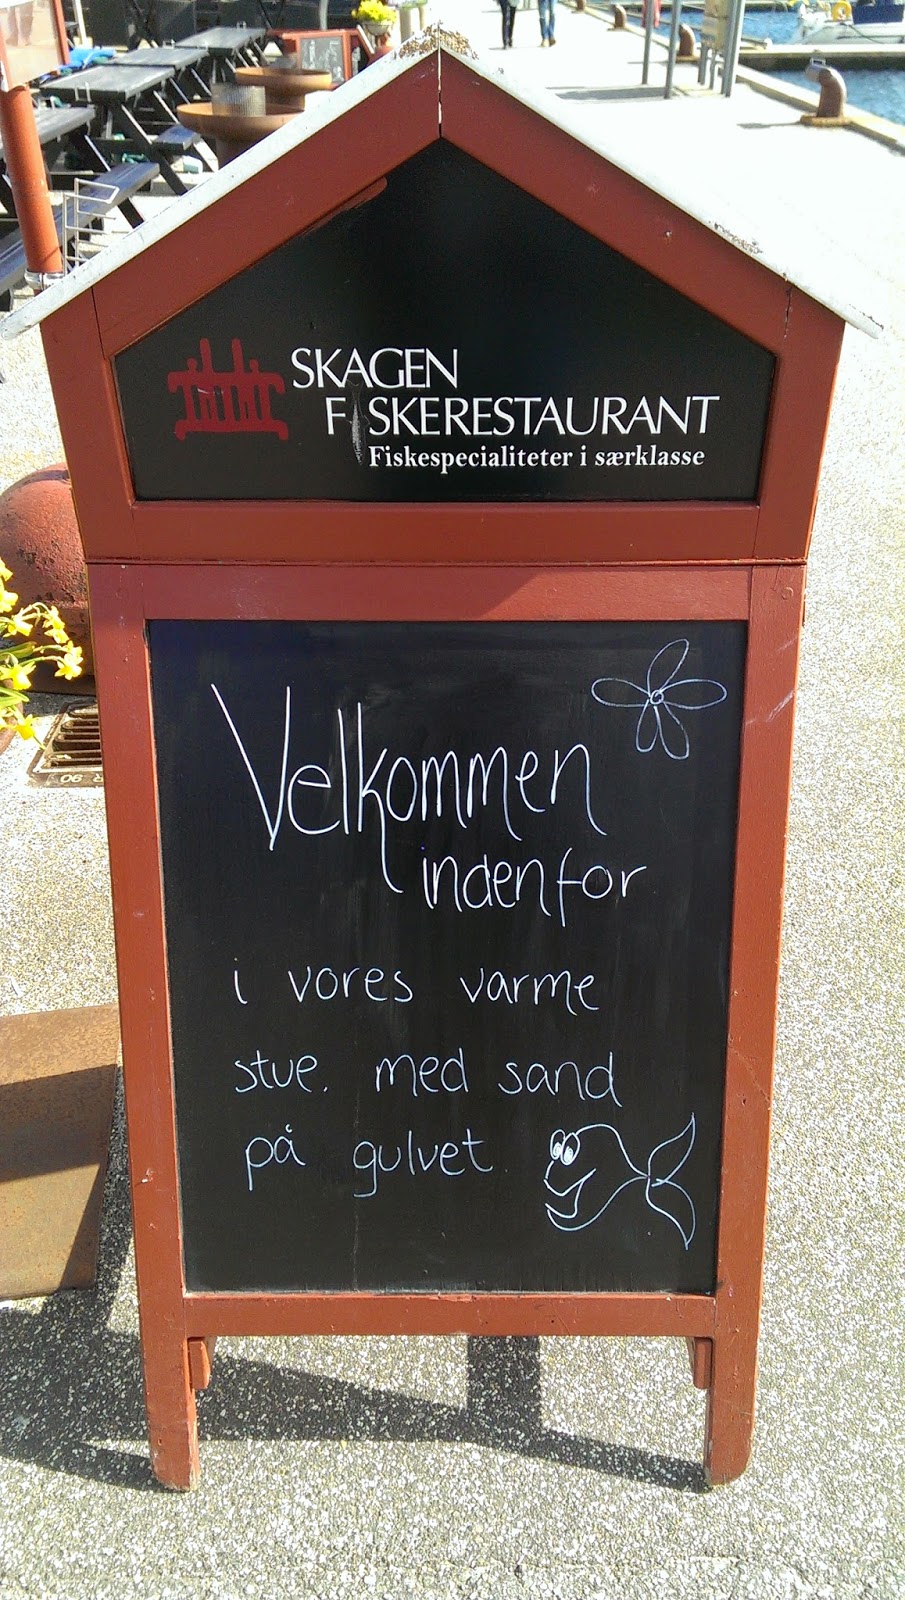 SKAGEN
FISKERESTAURANT
Fiskespecialiteter i særklasse
Velkommen
indenfor
i vores varme
stue. med sand
på gulvet